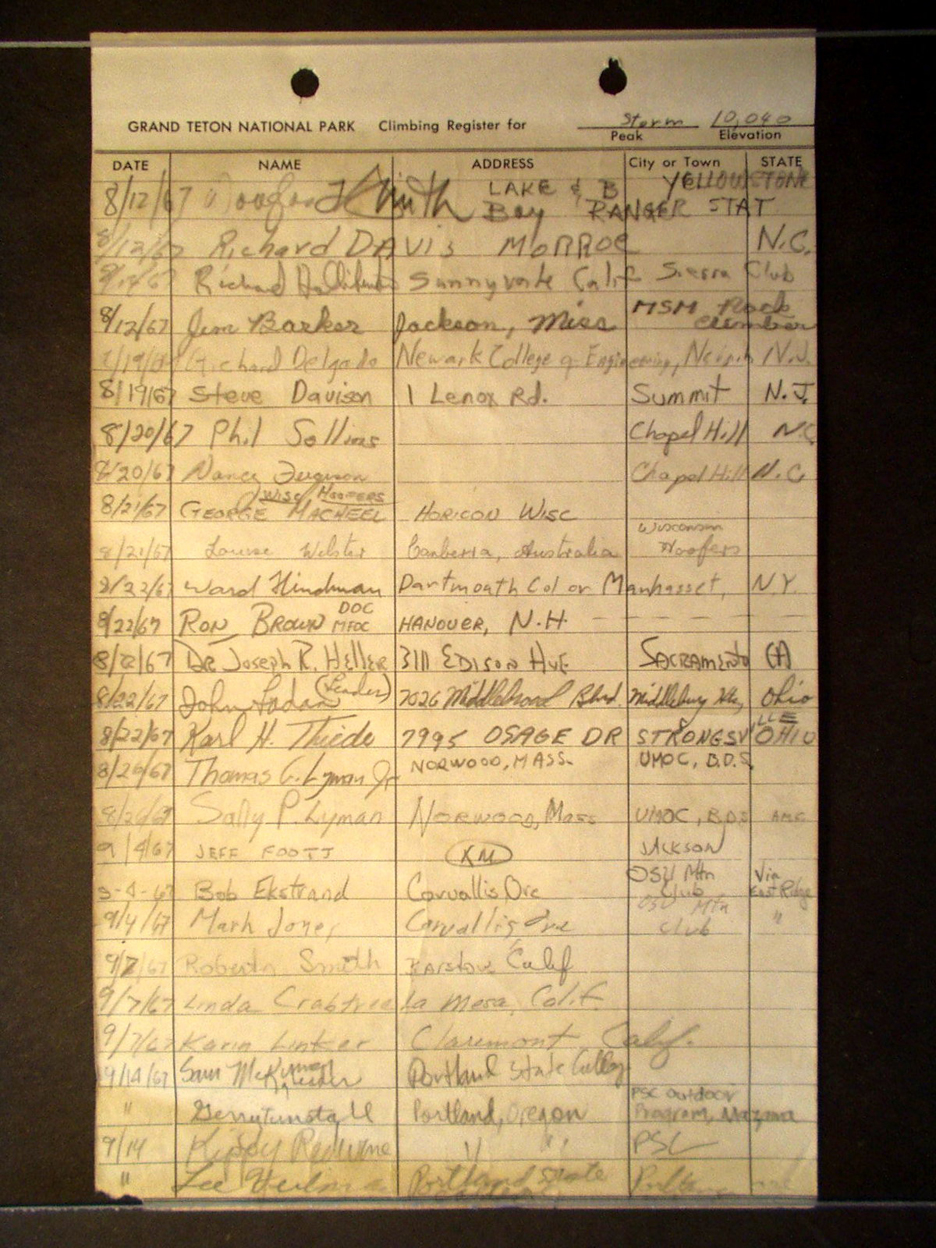 GRAND TETON NATIONAL PARK Climbing Register for Storm 10,040
Peak Elevation
DATE NAME ADDRESS City or Town STATE
8/12/67 Smith LAKE & B YELLOWSTONE
Bay RANGER STAT
8/12/67 Richard DAVIS MONROE N.C.
Richard Sunnyvale Calif Sierra Club
8/12/67 Jim Barker Jackson, Miss MSM Rock
climber
Richard Delgado Newark College of Engineering, N.J.
8/19/67 Steve Davison 1 Lenox Rd. Summit N.J.
8/20/67 Phil Sollins Chapel Hill N.C
8/20/67 Nancy Ferguson Chapel Hill N.C.
WISC HOOFERS
8/21/67 GEORGE MACHEEL HORICON WISC
Wisconsin
8/21/67 Louise Webster Canberra, Australia Hoofers
8/22/67 Ward Hindman Dartmouth Col or Manhasset, N.Y.
DOC
8/22/67 RON BROWN MFOC HANOVER, N.H. - - - -
8/22/67 DR. Joseph R. HELLER 3111 EDISON AVE SACRAMENTO CA
8/22/67 John (Leader) 7026 Blvd. Middleburg Hts, Ohio
LLE
8/22/67 Karl H. Thiede 7995 OSAGE DR STRONGSV OHIO
8/26/67 Thomas G. Lyman Jr NORWOOD, MASS. UMOC, B.D.S.
8/26/67 Sally P. Lyman NORWOOD, Mass UMOC, B.D.S AMC
9/4/67 JEFF FOOTT JACKSON
OSU Mtn Via
Bob Ekstrand Corvallis Ore Club East Ridge
OSU Mtn
9/4/67 Mark Jones Corvallis Ore Club "
9/7/67 Roberta Smith Barstow Calif
9/7/67 Linda Crabtree La Mesa, Calif.
9/7/67 Karin Linker Claremont, Calif.
9/14/67 Sam Portland State College
PSC Outdoor
" Gerry Tunstall Portland, Oregon Program, Mazama
9/14 Kippy " " PSC
" Lee Portland State